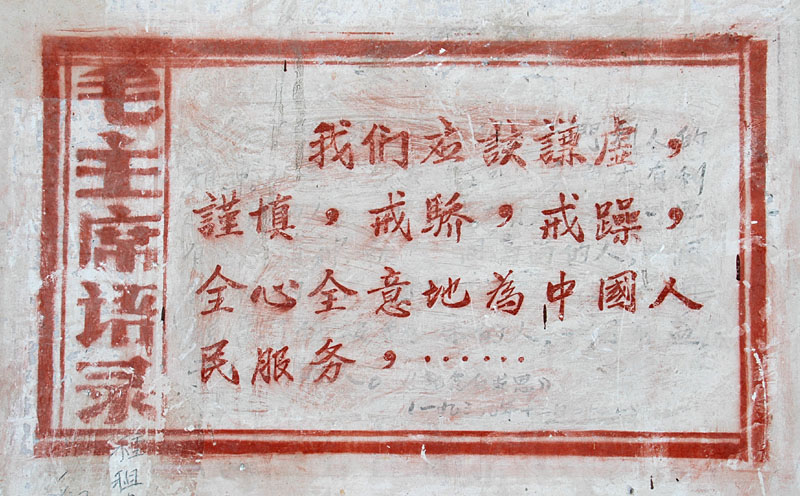 毛主席语录
我们应該謙虚，
謹慎，戒驕，戒躁，
全心全意地為中國人
民服务，……